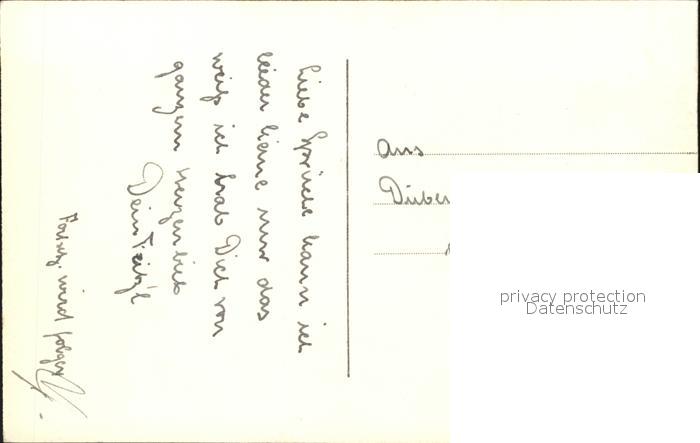 Liebe Sprüche kann ich
leider keine nur das
weiß ich hab Dich von
ganzem Herzen lieb
Dein
Forts. wird folgen
Aus
privacy protection
Datenschutz